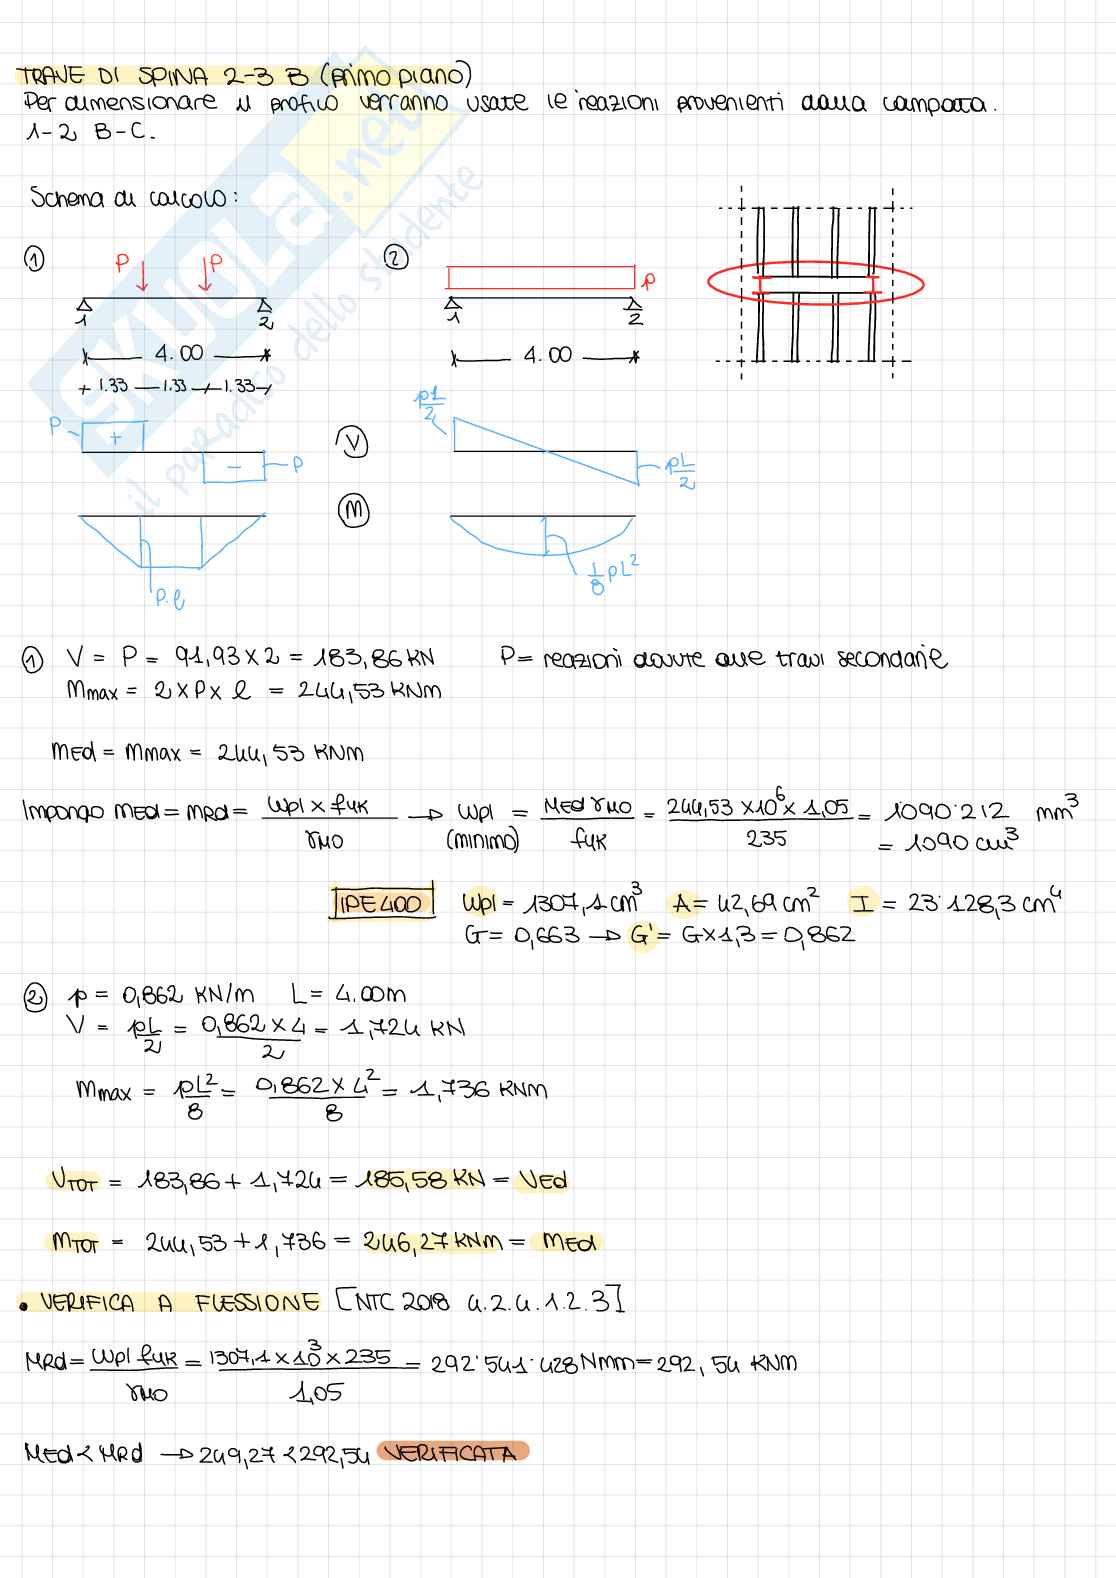 TRAVE DI SPINA 2-3 B (primo piano)
Per dimensionare il profilo verranno usate le reazioni provenienti dalla campata
1-2 B-C.
Schema di calcolo:
① P P ② p
1 2 1 2
4.00 4.00
1.33 1.33 1.33
P + - P V pL/2 pL/2
M
P.l 1/8 pL²
① V = P = 91,93 x 2 = 183,86 KN P = reazioni dovute alle travi secondarie
Mmax = 2 x P x l = 244,53 KNm
MEd = Mmax = 244,53 KNm
Impongo MEd = MRd = Wpl x fyk / γM0 → Wpl (minimo) = MEd γM0 / fyk = 244,53 x 10⁶ x 1,05 / 235 = 1090·212 mm³
= 1090 cm³
IPE 400 Wpl = 1307,1 cm³ A = 42,69 cm² I = 23·128,3 cm⁴
G = 0,663 → G' = G x 1,3 = 0,862
② p = 0,862 KN/m L = 4.00 m
V = pL/2 = 0,862 x 4 / 2 = 1,724 KN
Mmax = pL²/8 = 0,862 x 4² / 8 = 1,736 KNm
VTOT = 183,86 + 1,724 = 185,58 KN = VEd
MTOT = 244,53 + 1,736 = 246,27 KNm = MEd
• VERIFICA A FLESSIONE [NTC 2018 4.2.4.1.2.3]
MRd = Wpl fyk / γM0 = 1307,1 x 10³ x 235 / 1,05 = 292·541·428 Nmm = 292,54 KNm
MEd < MRd → 249,27 < 292,54 VERIFICATA
SKUOLA.net
il paradiso dello studente